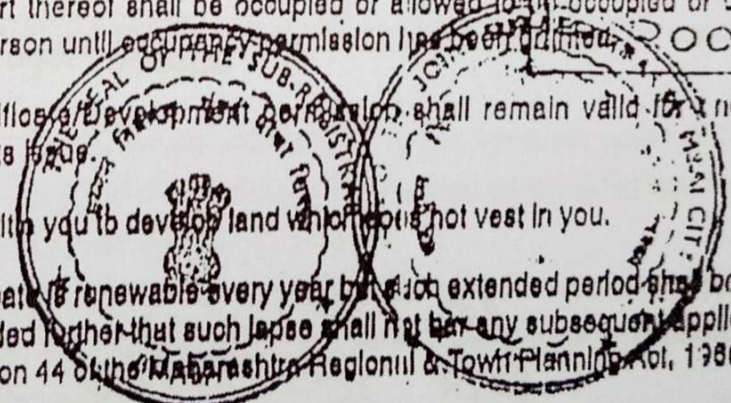 rt thereof shall be occupied or allowed to be occupied or
rson until occupancy permission has been granted
ificate/Development permission shall remain valid for
s issue.
you to develop land which does not vest in you.
is renewable every year but such extended period shall
ded further that such lapse shall not bar any subsequent appli
on 44 of the Maharashtra Regional & Town Planning Act, 196
SEAL OF THE SUB-REGISTRAR
JOINT
CITY